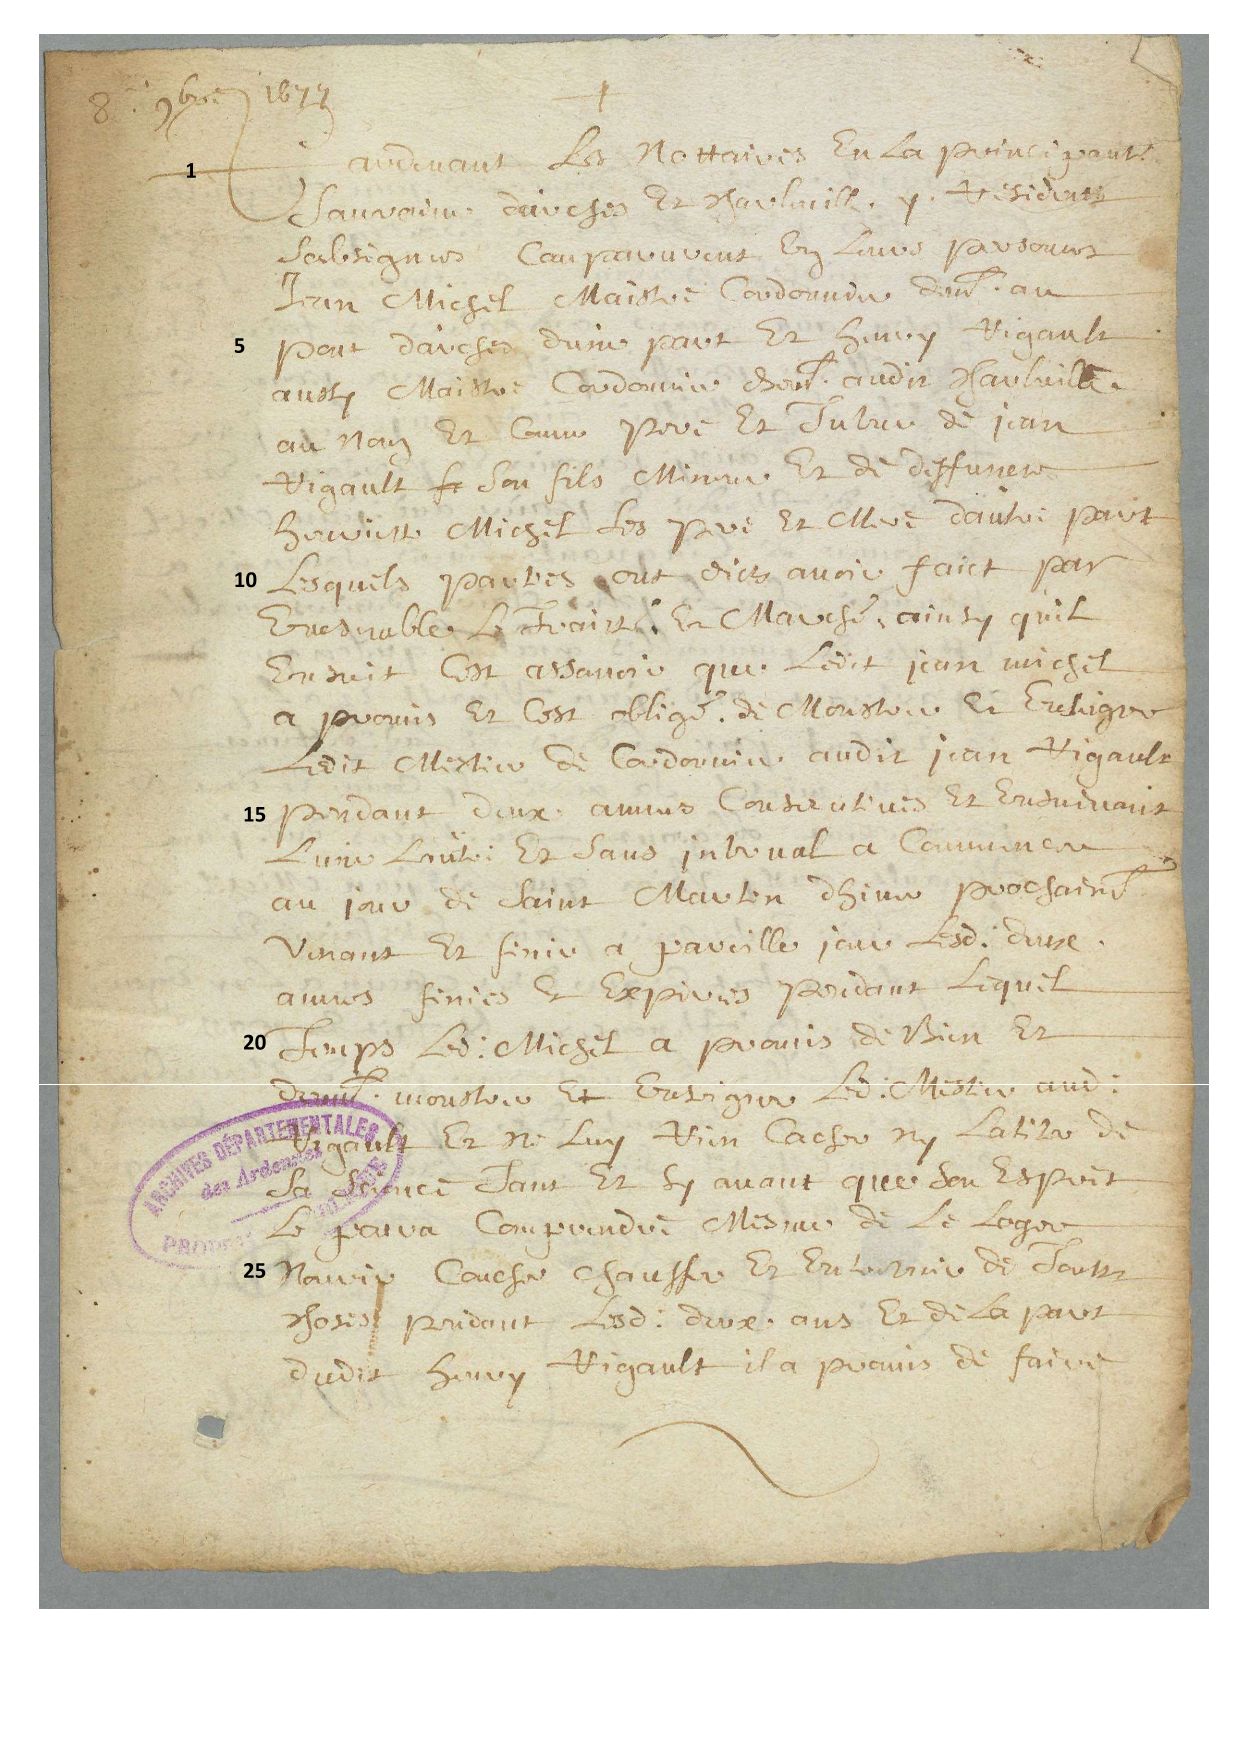 8e 9bre 1677
1 Pardevant Les Nottaires En La principauté
Sauvaine darches Et Charleville y Residents
Soubsignes Comparurent En Leurs personnes
Jean Michel Maistre Cordonnier demt. au
5 pont darches dune part Et henry Rigault
aussy Maistre Cordonnier demt. audit Charleville
au nom Et Comme pere Et Tuteur de jean
Rigault son fils Mineur Et de deffuncte
henriette Michel Les pere Et Mere dautre part
10 Lesquels parties ont dictes avoir faict par
Ensemble Le Traitté Et Marché ainsy quil
Ensuit Cest assavoir que Ledit jean michel
a promis Et Cest obligé de Monstrer Et Enseigner
Ledit Mestier de Cordonnier audit jean Rigault
15 pendant deux annees Consecutives Et Ensuivant
Lune Lautre Et Sans interval a Commencer
au jour de Saint Martin dhiver prochaint
Venant Et finir a pareille jour Lesd: deux
annees finies Et Expirees pendant Lequel
20 Temps Led: Michel a promis de Bien Et
deument monstrer Et Enseigner Led: Mestier aud:
Rigault Et ne Luy Rien Cacher ny Latiter de
Sa Science Tant Et Sy avant que Son Esprit
Le poura Comprendre Mesme de Le Loger
25 Nourir Coucher Chauffer Et Entretenir de Toutes
Choses pendant Lesd: deux ans Et de La part
dudit henry Rigault il a promis de faire
ARCHIVES DÉPARTEMENTALES
des Ardennes